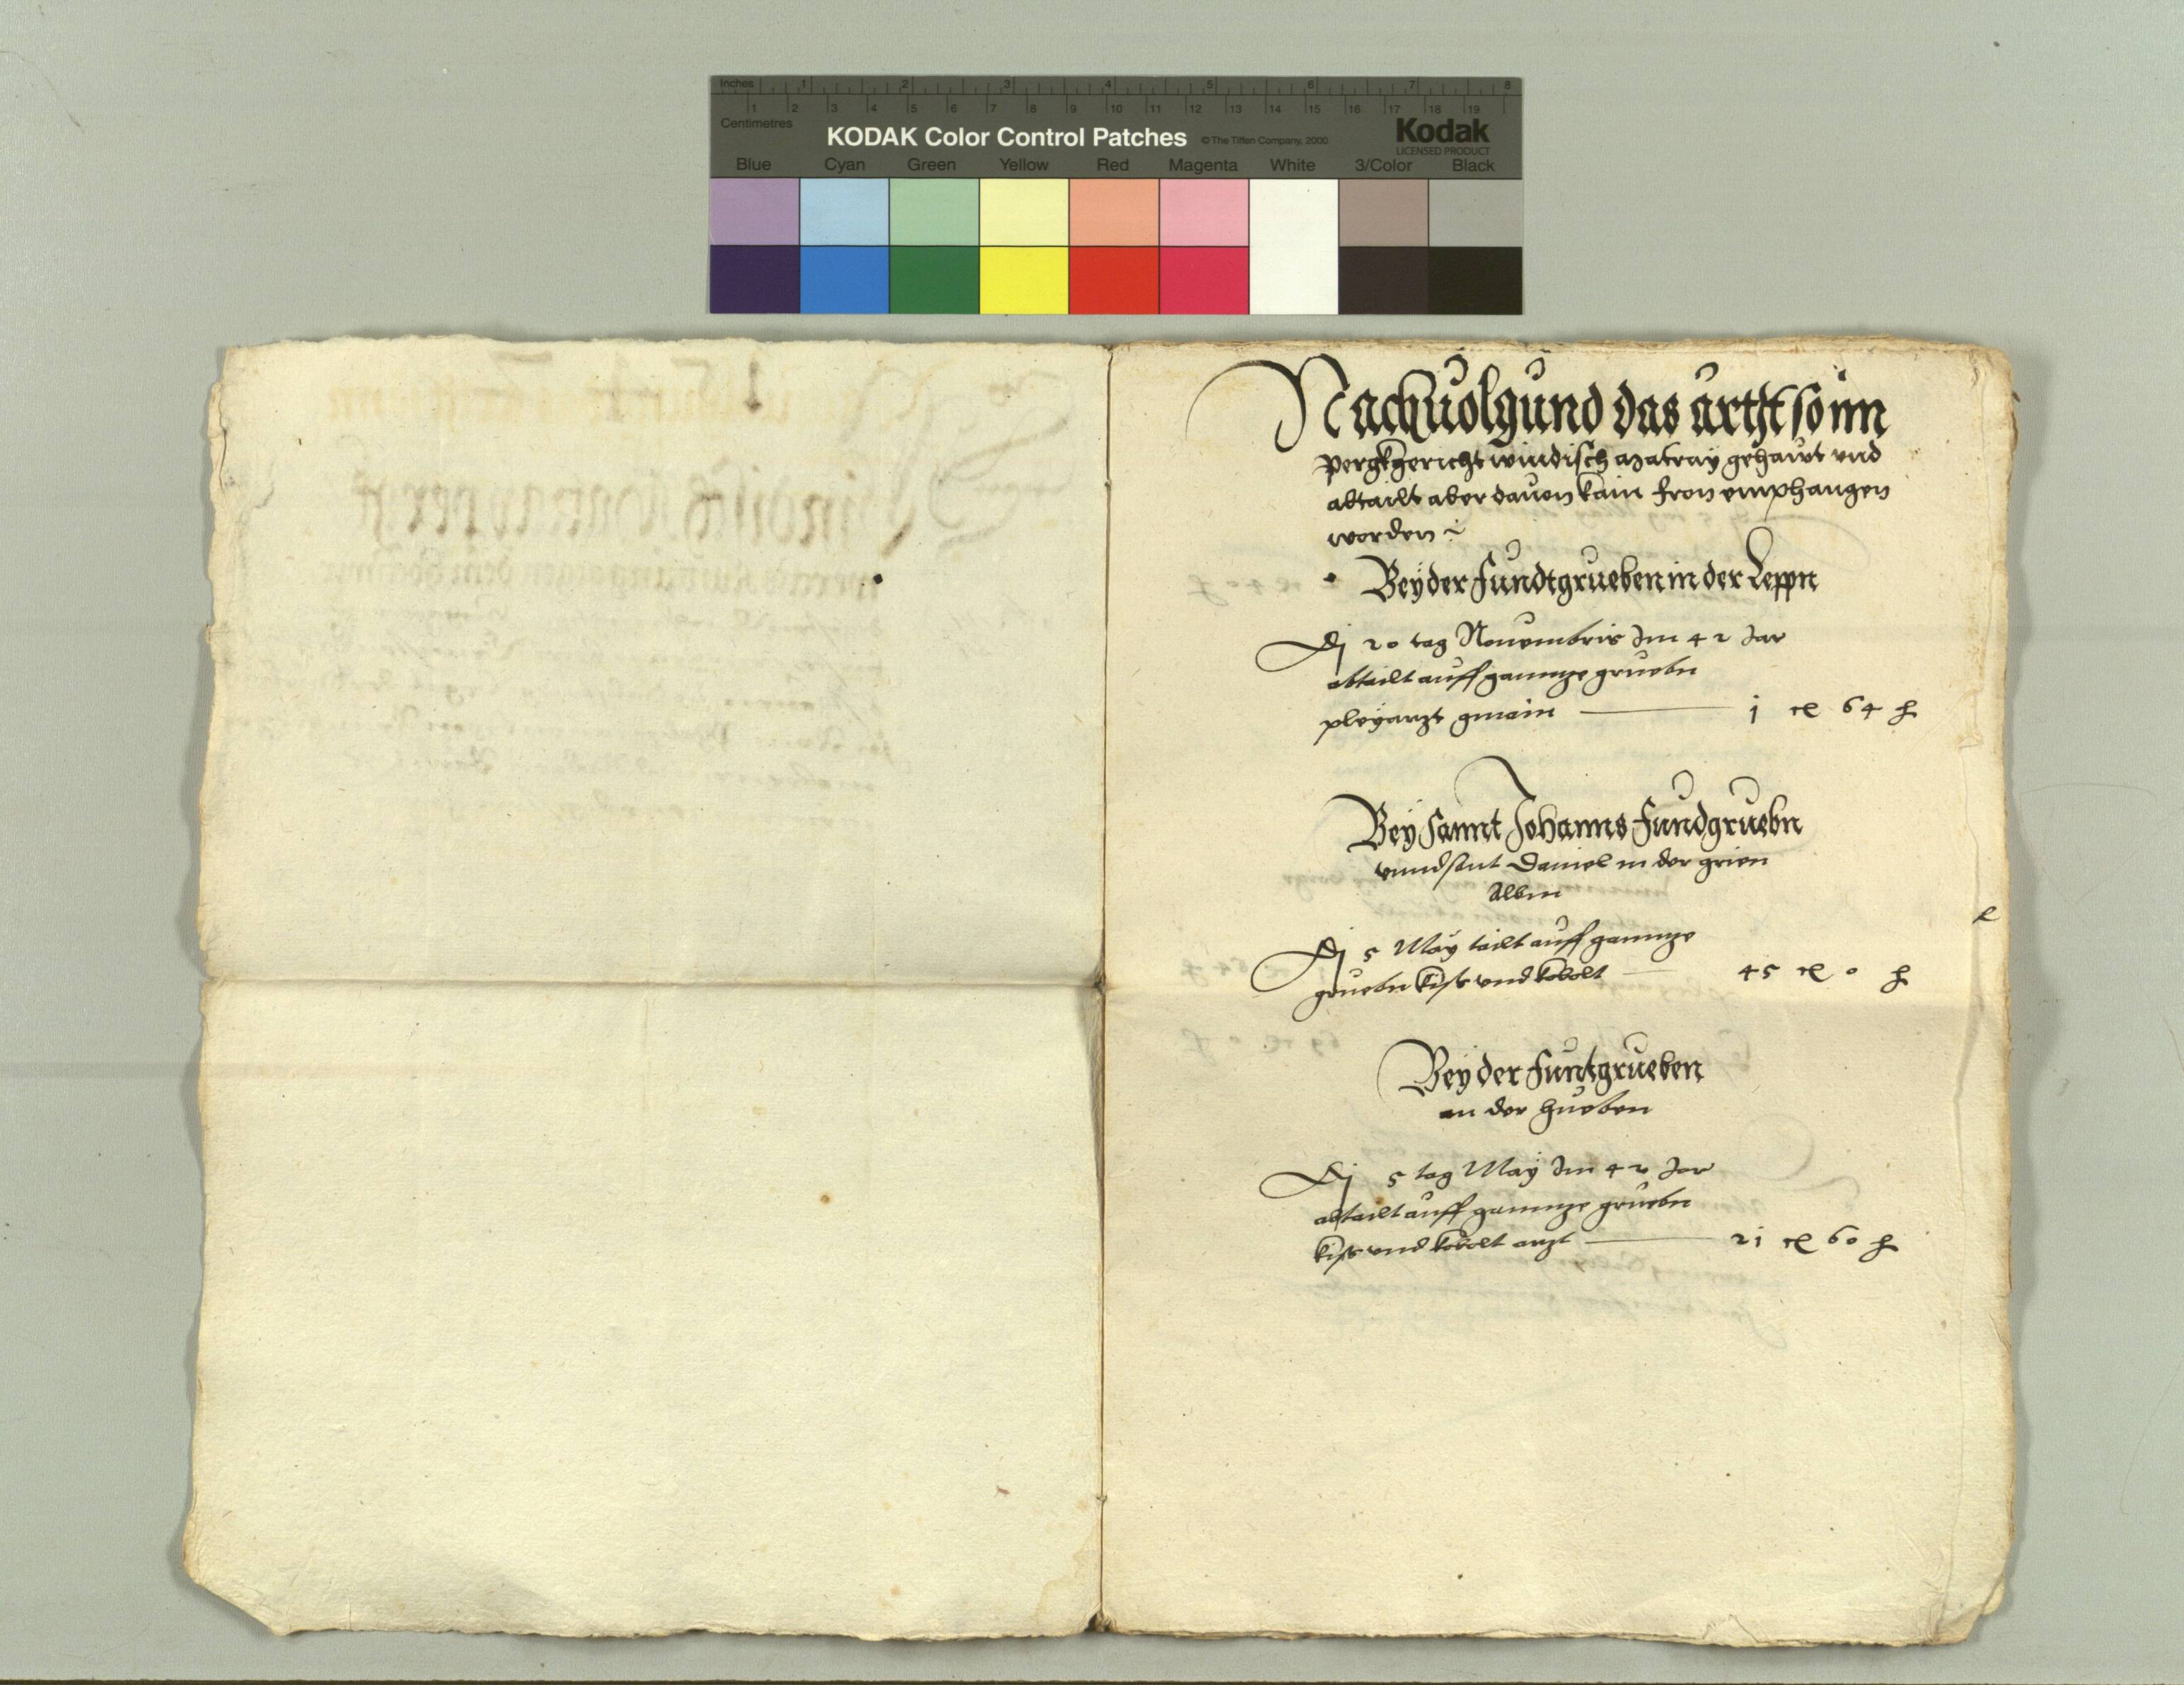 Inches 1 2 3 4 5 6 7 8
1 2 3 4 5 6 7 8 9 10 11 12 13 14 15 16 17 18 19
Centimetres
KODAK Color Control Patches © The Tiffen Company, 2000 Kodak
LICENSED PRODUCT
Blue Cyan Green Yellow Red Magenta White 3/Color Black
Nachuolgund das ärtzt so im
pergkgericht windisch matray gehawt vnd
abtailt aber dauon kain fron emphangen
worden
Bey der Fundtgrueben in der Leppn
Aj 20 tag Nouembris Im 42 Jar
abtailt auff gannze gruebn
pleyarzt gmain j 64
Bey sannt Johanns Fundgruebn
vnnd sant Daniel in der grien
Albm
Aj 5 May tailt auff gannze
gruebn kiss vnd kobolt 45 0
Bey der Funtgrueben
an der hueben
Aj 5 tag May Im 42 Jar
abtailt auff gannze gruebn
kiss vnd kobolt arzt 21 60